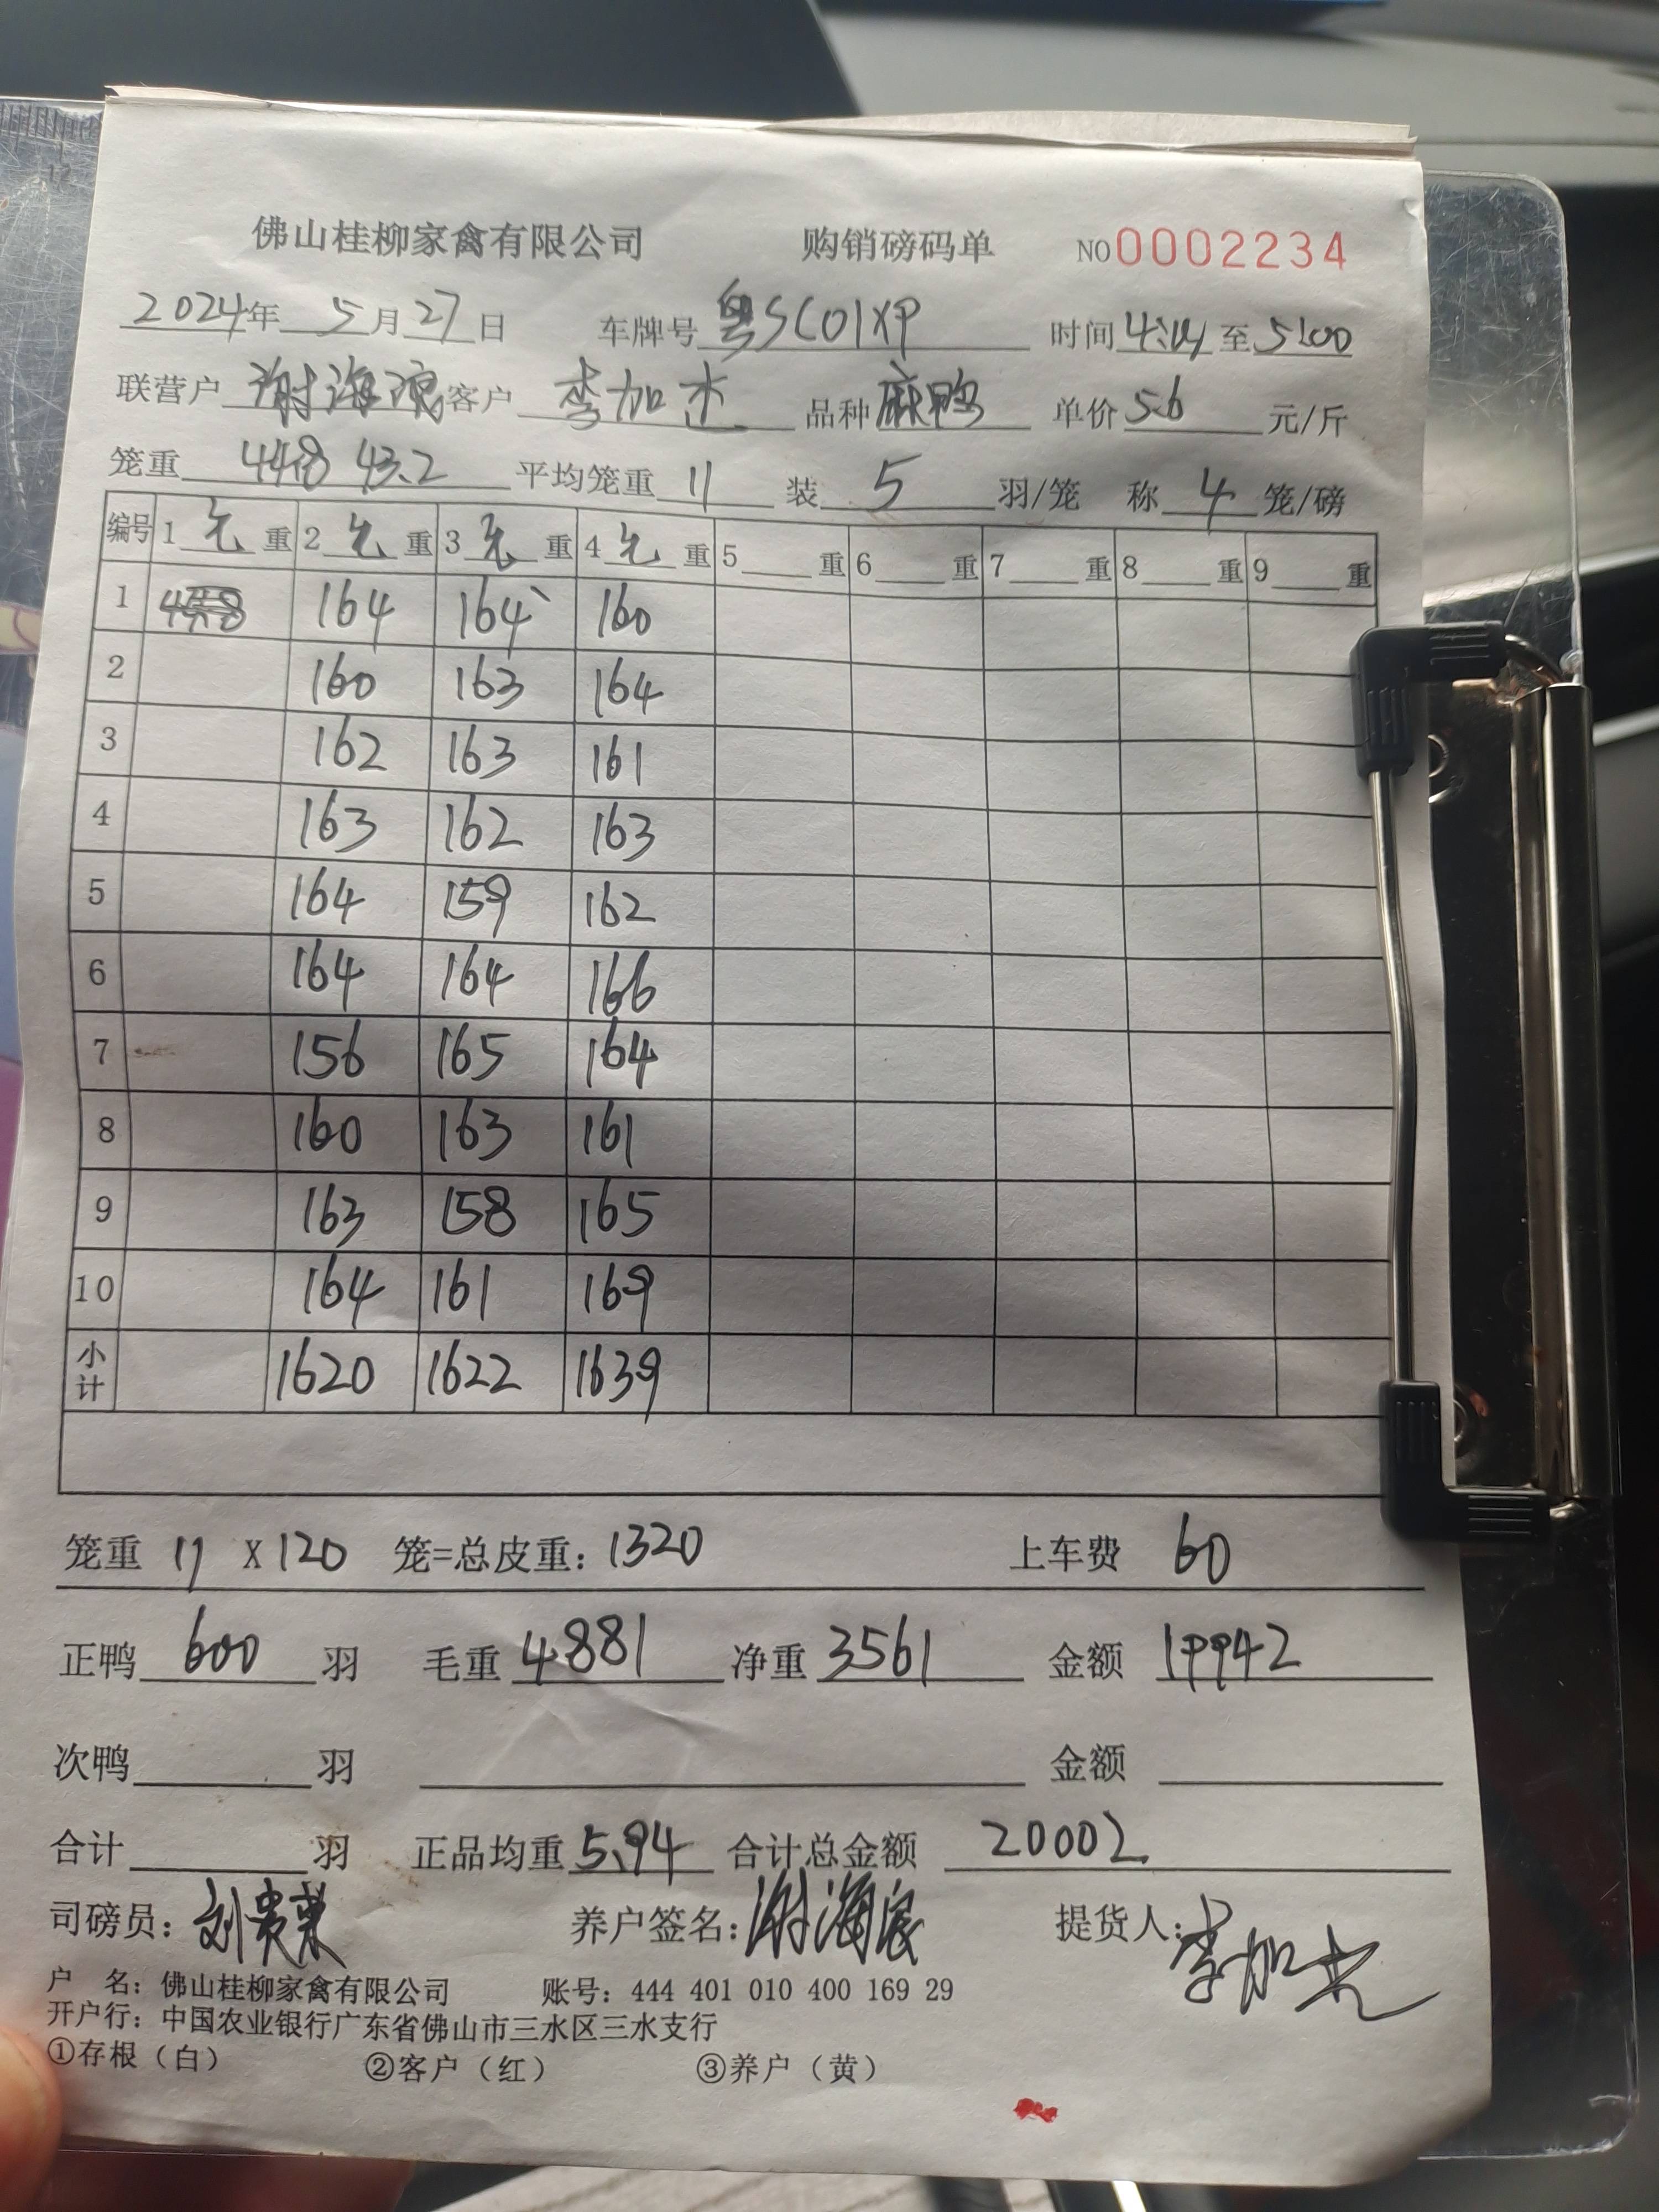 佛山桂柳家禽有限公司 购销磅码单 NO 0002234
2024年 5月27日 车牌号 粤SC01XP 时间 4:14 至 5:00
联营户 谢海浪 客户 李加杰 品种 麻鸭 单价 5.6 元/斤
笼重 44.8 43.2 平均笼重 11 装 5 羽/笼 称 4 笼/磅
编号 1 毛 重 2 毛 重 3 毛 重 4 毛 重 5 重 6 重 7 重 8 重 9 重
1 164 164 160
2 160 163 164
3 162 163 161
4 163 162 163
5 164 159 162
6 164 164 166
7 156 165 164
8 160 163 161
9 163 158 165
10 164 161 169
小计 1620 1622 1639
笼重 11 X 120 笼=总皮重: 1320 上车费 60
正鸭 600 羽 毛重 4881 净重 3561 金额 19942
次鸭 羽 金额
合计 羽 正品均重 5.94 合计总金额 20002
司磅员: 刘贵 养户签名: 谢海浪 提货人: 李加杰
户 名: 佛山桂柳家禽有限公司 账号: 444 401 010 400 169 29
开户行: 中国农业银行广东省佛山市三水区三水支行
①存根（白） ②客户（红） ③养户（黄）